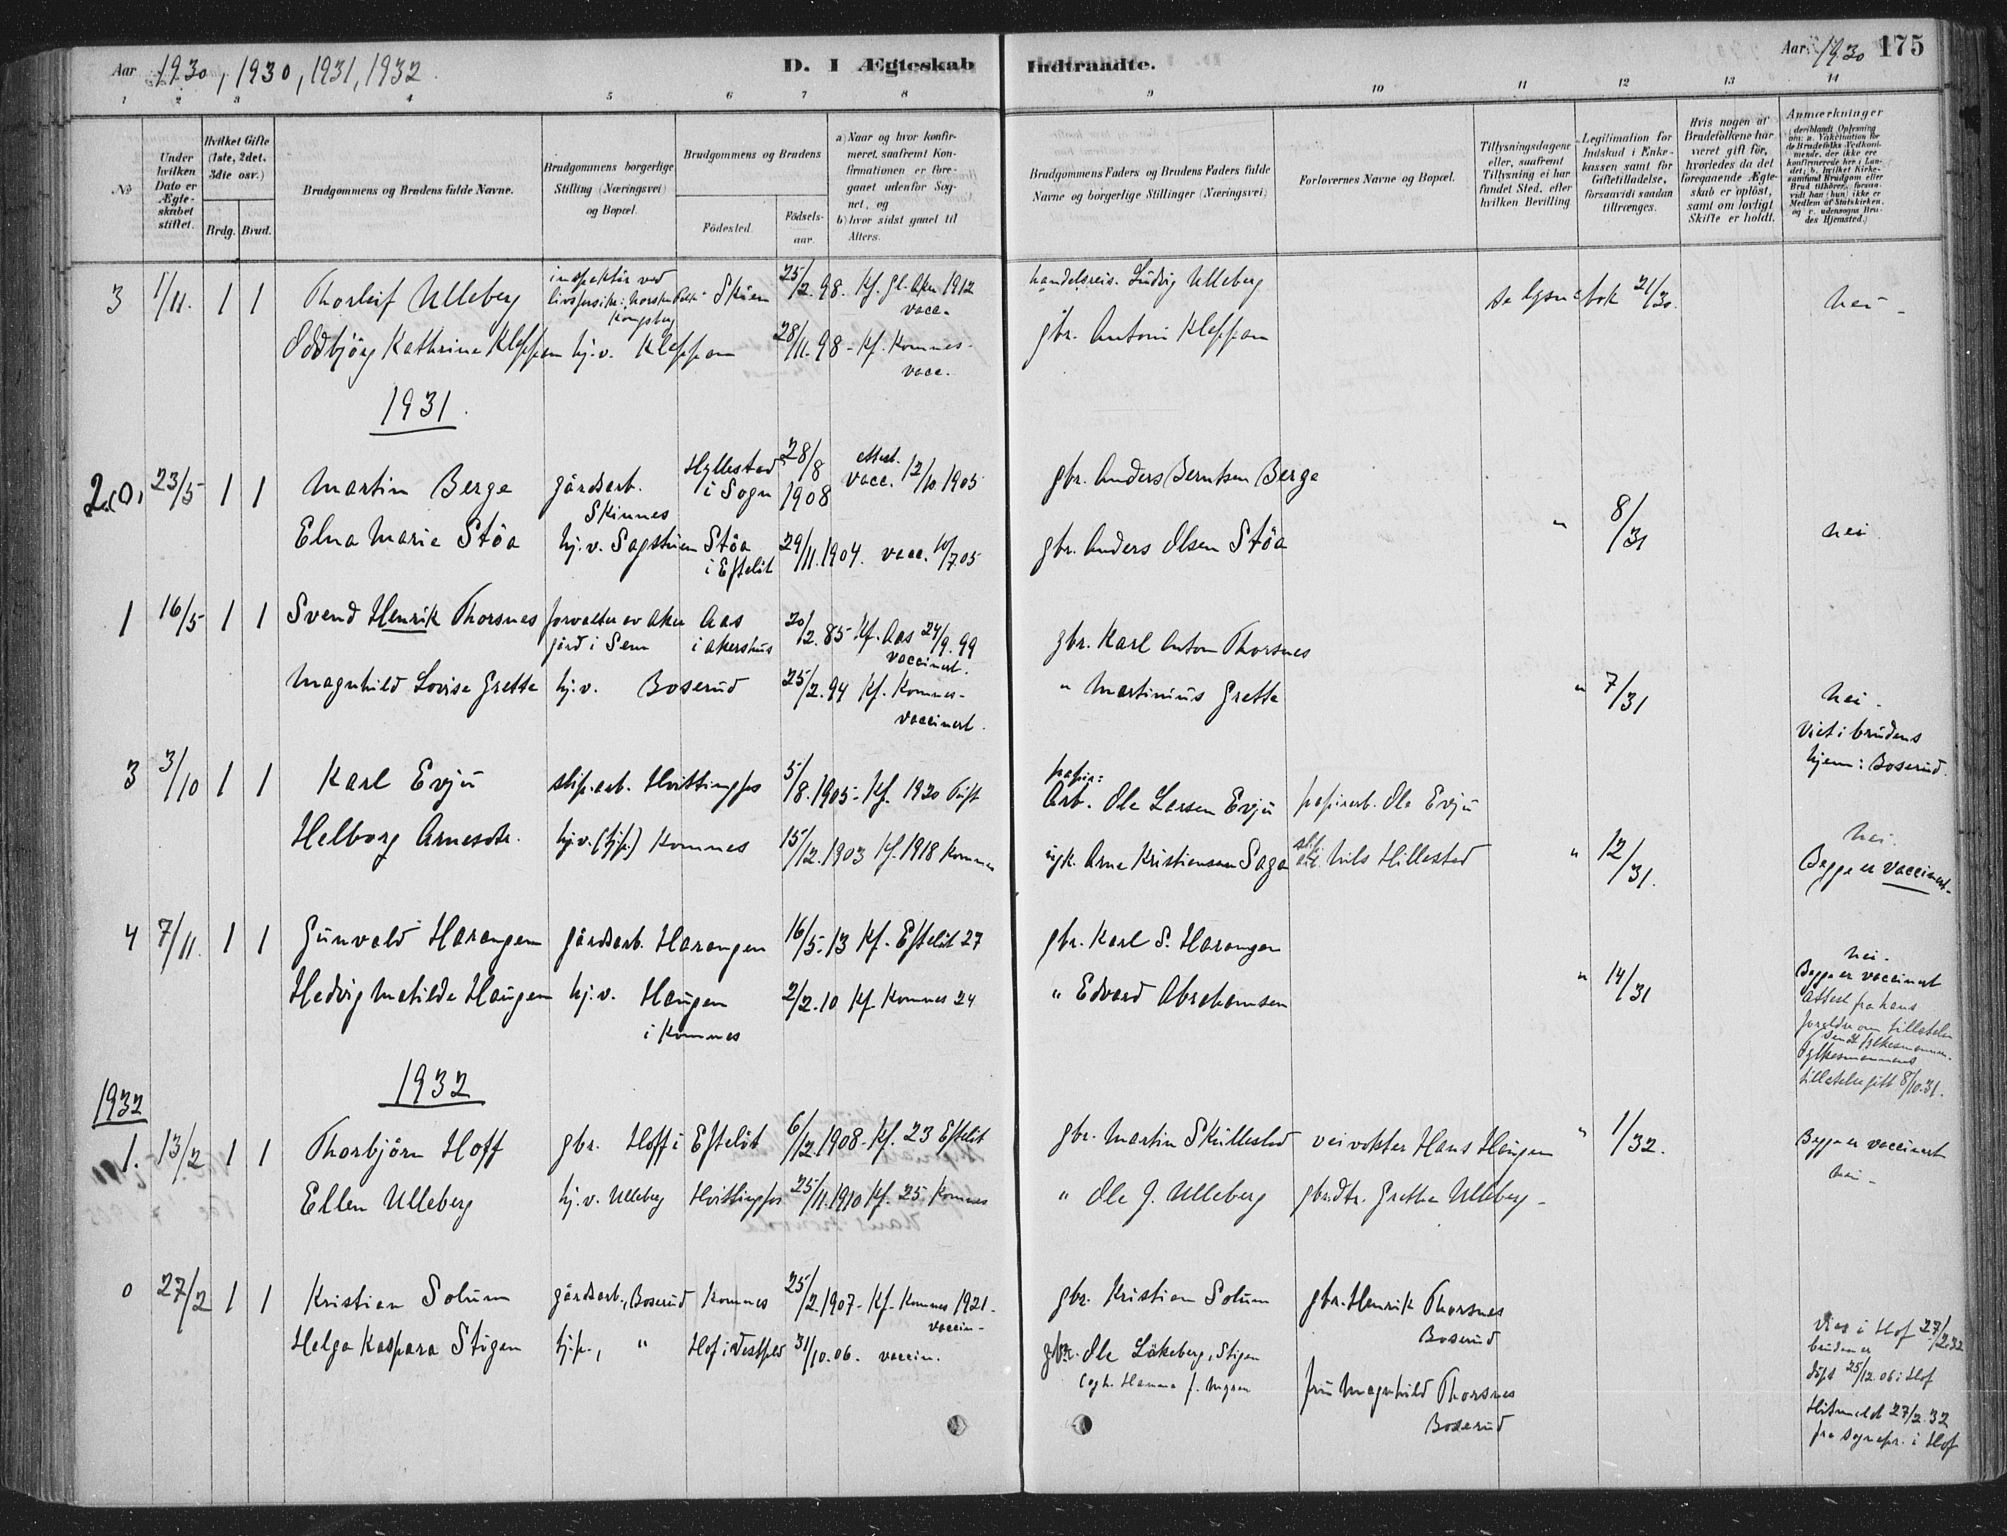 Aar 1930, 1930, 1931, 1932
D. I Ægteskab Indtraadte.
Aar 1930 175
1 2 3 4 5 6 7 8 9 10 11 12 13 14
No
Under hvilken Dato er Ægteskabet stiftet.
Hvilket Gifte (1ste, 2det, 3die osv.)
Brdg. Brud.
Brudgommens og Brudens fulde Navne.
Brudgommens borgerlige Stilling (Næringsvei) og Bopæl.
Brudgommens og Brudens
Fødested.
Fødselsaar.
a) Naar og hvor konfirmeret, saafremt Konfirmationen er foregaaet udenfor Sognet, og
b) hvor sidst gaaet til Alters.
Brudgommens Faders og Brudens Faders fulde Navne og borgerlige Stillinger (Næringsvei)
Forlovernes Navne og Bopæl.
Tillysningsdagene eller, saafremt Tillysning ei har fundet Sted, efter hvilken Bevilling
Legitimation for Indskud i Enkekassen samt for Giftetilladelse, forsaavidt saadan tiltrænges.
Hvis nogen af Brudefolkene har været gift før, hvorledes da det foregaaende Ægteskab er opløst, samt om lovligt Skifte er holdt.
Anmærkninger
3 1/11. 1 1 Thorleif Ulleberg inspektør ved Kongsberg Skien 25/2.98. Kf. Gl. Aker 1912 vacc. handelsreis. Ludvig Ulleberg 21/30. nei
Oddbjørg Kathrine Kleppen hj.v. Kleppan 28/11.98 - Kf. Komnes - vacc. gbr. Anton Kleppan
1931
23/5 1 1 Martin Berge gårdsarb. Skinnes Hyllestad i Sogn 28/8 1908 Attest. vacc. 12/10 1905 gbr. Anders Berntsen Berge
Elna Marie Støa hj.v. Sagstuen Støa i Efteløt 29/11.1904. vacc. 10/7.05 gbr. Anders Olsen Støa " 8/31 nei
1 16/5 1 1 Svend Henrik Thorsnes forvalter av Aker gård i Sem Aas i Akershus 20/2.85 Kf. Aas 24/9.99 vaccinert. gbr. Karl Anton Thorsnes
Magnhild Lovise Grette hj.v. Boserud 25/2.94 Kf. Komnes - vaccinert. " Martinius Grette " 7/31 nei.
Viet i brudens hjem: Boserud.
3 3/10 1 1 Karl Evju slip.arb. Hvittingfos 5/8.1905 - Kf. 1920 Tuft papir: Arb. Ole Larsen Evju papirarb. Ole Evju
Helborg Arnesdtr. hj.v. (hjp.) Komnes 15/12.1903 Kf. 1918 Komnes Arne Kristiansen Saga Nils Hillestad " 12/31. nei.
Begge er vaccinert -
4 7/11. 1 1 Gunvald Harangen gårdsarb. Harangen 16/5.13 Kf. Efteløt 27 gbr. Karl S. Harangen
Hedvig Matilde Haugen hj.v. Haugen i Komnes 2/2.10 Kf. Komnes 24 " Edvard Abrahamsen " 14/31
nei.
Begge er vaccinert
Attest fra hans
foreldre om tillatelse
sendt fylkesmannen.
Fylkesmannens
tillatelse gitt 8/10.31.
1932
1932
1. 13/2 1 1 Thorbjørn Hoff gbr. Hoff i Efteløt 6/12.1908 - Kf. 23 Efteløt gbr. Martin Skullestad veivokter Hans Haugen " 1/32. Begge er vaccinert
Ellen Ulleberg hj.v. Ulleberg Hvittingfos 25/11.1910 Kf. 25 Komnes " Ole J. Ulleberg gbr.dtr. Grethe Ulleberg - nei -
0 27/2 1 1 Kristian Solum gårdsarb., Boserud Komnes 25/2.1907 - Kf. Komnes 1921 - vaccin - gbr. Kristian Solum gbr. Henrik Thorsnes Boserud
Helga Kaspara Stigen hj.p., " Hof i Vestfold 31/10.06. vaccin. gbr. Ole Løkeberg, Stigen
frue Magnhild Thorsnes Boserud
Viet i Hof 27/2.32
bruden er
døpt 25/12.06 i Hof
27/2.32
fra sognepr. i Hof